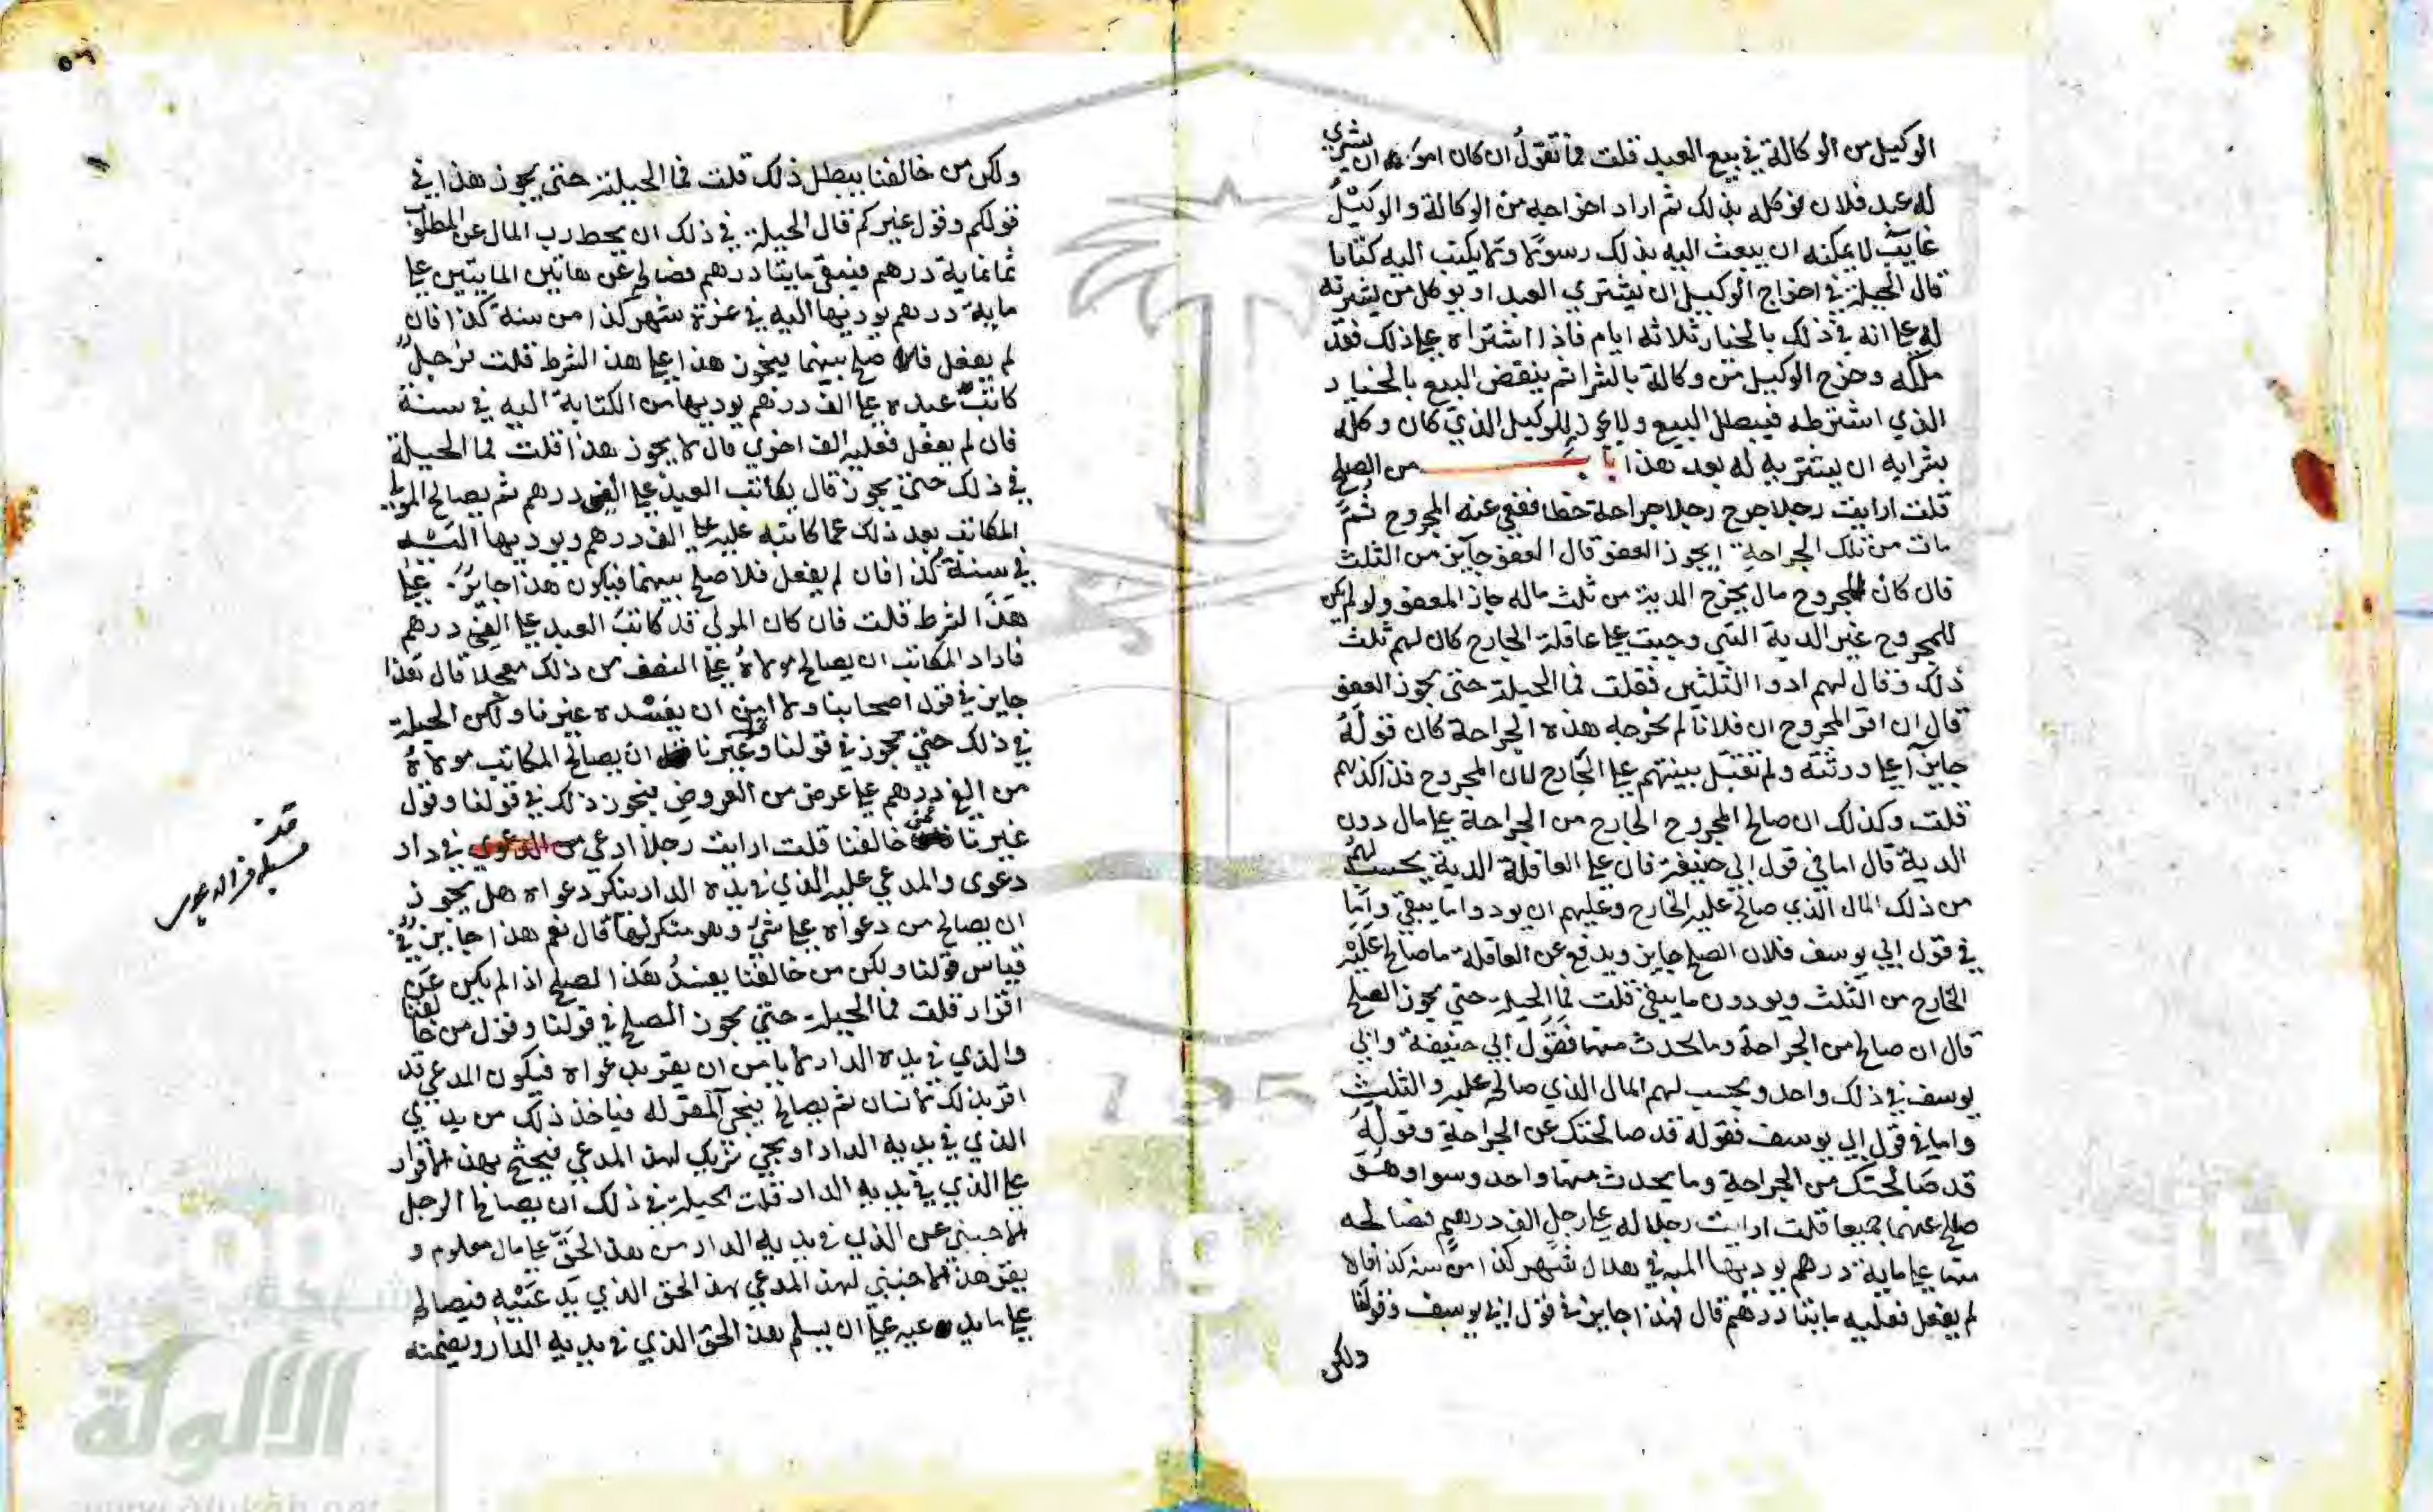 الوكيل من الوكالة في بيع العبد قلت فما تقول ان كان امره ان يشري
له عبد فلان فوكله بذلك ثم اراد اخراجه من الوكالة والوكيل
غايب لا يمكنه ان يبعث اليه بذلك رسولا ولا يكتب اليه كتابا
قال الحيلة في اخراج الوكيل ان يشتري العبد او يوكل من يشريه
له علي انه في ذلك بالخيار ثلاثه ايام فاذا اشتراه علي ذلك فقد
ملكه وخرج الوكيل من وكالة بالشرا ثم ينقض البيع بالخيار
الذي اشترطه فيبطل البيع ولا يجوز للوكيل الذي كان وكله
بشرايه ان يشتريه له بعد هذا باب من الصلح
قلت ارايت رجلا جرح رجلا جراحة خطا فعفي عنه المجروح ثم
مات من تلك الجراحة ايجوز العفو قال العفو جايز من الثلث
قال كان للمجروح مال يخرج الدية من ثلث ماله جاز العفو ولو لم يكن
للمجروح غير الدية التي وجبت علي عاقلة الجارح كان لهم ثلث
ذلك وقال لهم ادوا الثلثين فقلت فما الحيلة حتي يجوز العفو
قال ان اقر المجروح ان فلانا لم يجرحه هذه الجراحة كان قوله
جايزا علي ورثته ولم تقبل بينتهم علي الجارح لان المجروح قد اكذبهم
قلت وكذلك ان صالح المجروح الجارح من الجراحة علي مال دون
الدية قال اما في قول ابي حنيفة فان علي العاقلة الدية يحسب لهم
من ذلك المال الذي صالح عليه الجارح وعليهم ان يودوا ما يبقي واما
في قول ابي يوسف فلان الصلح جايز ويدفع عن العاقلة ما صالح عليه
الجارح من الثلث ويودون ما يبقي قلت فما الحيلة حتي يجوز الصلح
قال ان صالح من الجراحة وما يحدث منها فقول ابي حنيفة وابي
يوسف في ذلك واحد ويحسب لهم المال الذي صالح عليه والثلث
واما في قول ابي يوسف فقوله قد صالحتك عن الجراحة وقوله
قد صالحتك من الجراحة وما يحدث منها واحد وسوا وهو
صلح عنهما جميعا قلت ارايت رجلا له علي رجل الف درهم فصالحه
منها علي ماية درهم يوديها اليه في هلال شهر كذا من سنة كذا فان
لم يفعل فعليه مايتا درهم قال فهذا جايز في قول ابي يوسف وقولنا
ولكن
ولكن من خالفنا يبطل ذلك قلت فما الحيلة حتي يجوز هذا في
قولكم وقول غيركم قال الحيلة في ذلك ان يحط رب المال عن المطلوب
ثمانماية درهم فيبقي مايتا درهم فصالح عن هاتين المايتين علي
ماية درهم يوديها اليه في غرة شهر كذا من سنة كذا فان
لم يفعل فلا صلح بينهما فيجوز هذا علي هذا الشرط قلت فرجل
كاتب عبده علي الف درهم يوديها من الكتابة اليه في سنة
فان لم يفعل فعليه الف اخري قال لا يجوز هذا قلت فما الحيلة
في ذلك حتي يجوز قال يكاتب العبد علي الفي درهم ثم يصالح المولي
المكاتب بعد ذلك عما كاتبه عليه علي الف درهم ويوديها اليه
في سنة كذا فان لم يفعل فلا صلح بينهما فيكون هذا جايز علي
هذا الشرط قلت فان كان المولي قد كاتب العبد علي الفي درهم
فاراد المكاتب ان يصالح مولاه علي النصف من ذلك معجلا قال هذا
جايز في قول اصحابنا ولا امن ان يفسده غيرنا ولكن الحيلة
في ذلك حتي يجوز في قولنا وغيرنا ان يصالح المكاتب مولاه
من الفي درهم علي عرض من العروض فيجوز ذلك في قولنا وقول
غيرنا ممن خالفنا قلت ارايت رجلا ادعي من الدعوي في دار
دعوي والمدعي عليه الذي في يده الدار ينكر دعواه هل يجوز
ان يصالح من دعواه علي شي وهو منكر لها قال نعم هذا جايز في
قياس قولنا ولكن من خالفنا يفسد هذا الصلح اذا لم يكن عن
اقرار قلت فما الحيلة حتي يجوز الصلح في قولنا وقول من خالفنا
والذي في يده الدار لا يامن ان يقر بدعواه فيكون المدعي قد
اقر بذلك لانسان ثم يصالح فيجي المقر له فياخذ ذلك من يدي
الذي في يديه الدار او يجي شريك لهذا المدعي فيحتج بهذا الاقرار
علي الذي في يديه الدار قلت الحيلة في ذلك ان يصالح الرجل
الاجنبي عن الذي في يديه الدار من هذا الحق علي مال معلوم و
يقر هذا الاجنبي لهذا المدعي بهذا الحق الذي يدعيه فيصالح
علي ما يدعيه علي ان يسلم هذا الحق الذي في يديه الدار ويضمنه